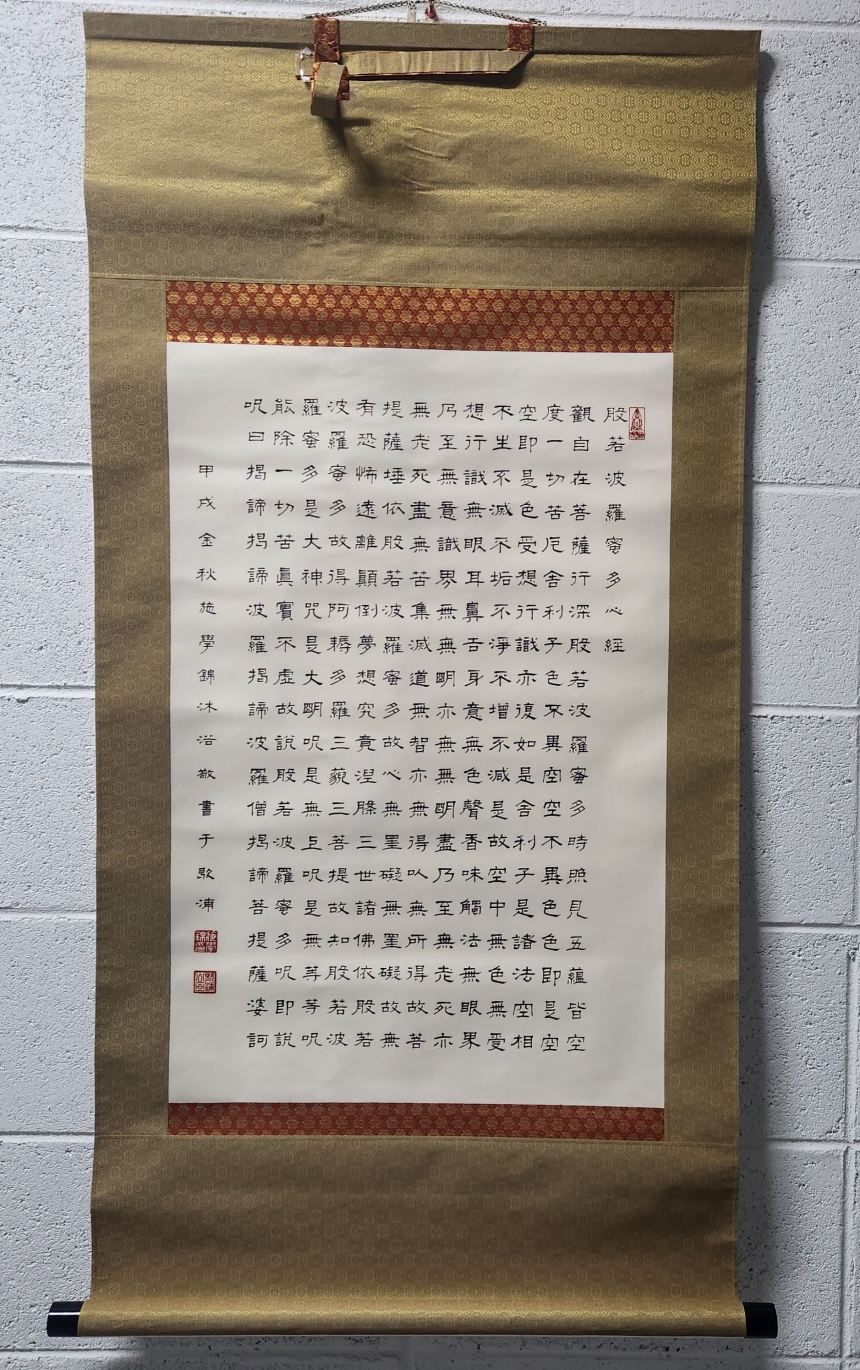 般若波羅蜜多心經
觀自在菩薩行深般若波羅蜜多時照見五蘊皆空
度一切苦厄舍利子色不異空空不異色色即是空
空即是色受想行識亦復如是舍利子是諸法空相
不生不滅不垢不淨不增不減是故空中無色無受
想行識無眼耳鼻舌身意無色聲香味觸法無眼界
乃至無意識界無無明亦無無明盡乃至無老死亦
無老死盡無苦集滅道無智亦無得以無所得故菩
提薩埵依般若波羅蜜多故心無罣礙無罣礙故無
有恐怖遠離顛倒夢想究竟涅槃三世諸佛依般若
波羅蜜多故得阿耨多羅三藐三菩提故知般若波
羅蜜多是大神咒是大明呪是無上呪是無等等呪
能除一切苦眞實不虛故說般若波羅蜜多呪即說
呪曰揭諦揭諦波羅揭諦波羅僧揭諦菩提薩婆訶
甲戌金秋施學錦沐浴敬書于歇浦